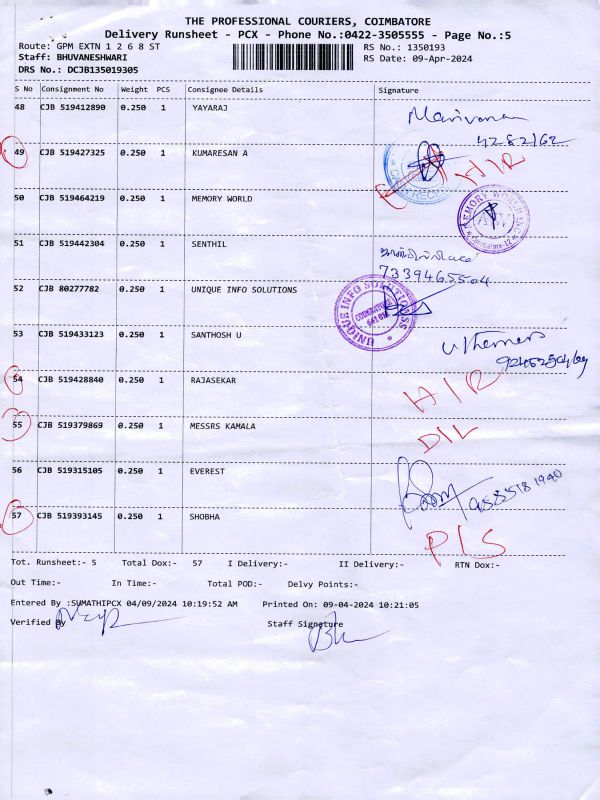 THE PROFESSIONAL COURIERS, COIMBATORE
Delivery Runsheet - PCX - Phone No.:0422-3505555 - Page No.:5
Route: GPM EXTN 1 2 6 8 ST
RS No.: 1350193
Staff: BHUVANESHWARI
RS Date: 09-Apr-2024
DRS No.: DCJB135019305
S No Consignment No Weight PCS Consignee Details Signature
48 CJB 519412890 0.250 1 YAYARAJ
49 CJB 519427325 0.250 1 KUMARESAN A H/R
50 CJB 519464219 0.250 1 MEMORY WORLD
MEMORY WORLD
51 CJB 519442304 0.250 1 SENTHIL
7339465504
52 CJB 80277782 0.250 1 UNIQUE INFO SOLUTIONS
UNIQUE INFO SOLUTIONS
53 CJB 519433123 0.250 1 SANTHOSH U
54 CJB 519428840 0.250 1 RAJASEKAR H/R
55 CJB 519379869 0.250 1 MESSRS KAMALA D/L
56 CJB 519315105 0.250 1 EVEREST
57 CJB 519393145 0.250 1 SHOBHA P/S
Tot. Runsheet:- 5 Total Dox:- 57 I Delivery:- II Delivery:- RTN Dox:-
Out Time:- In Time:- Total POD:- Delvy Points:-
Entered By :SUMATHIPCX 04/09/2024 10:19:52 AM Printed On: 09-04-2024 10:21:05
Verified By Staff Signature